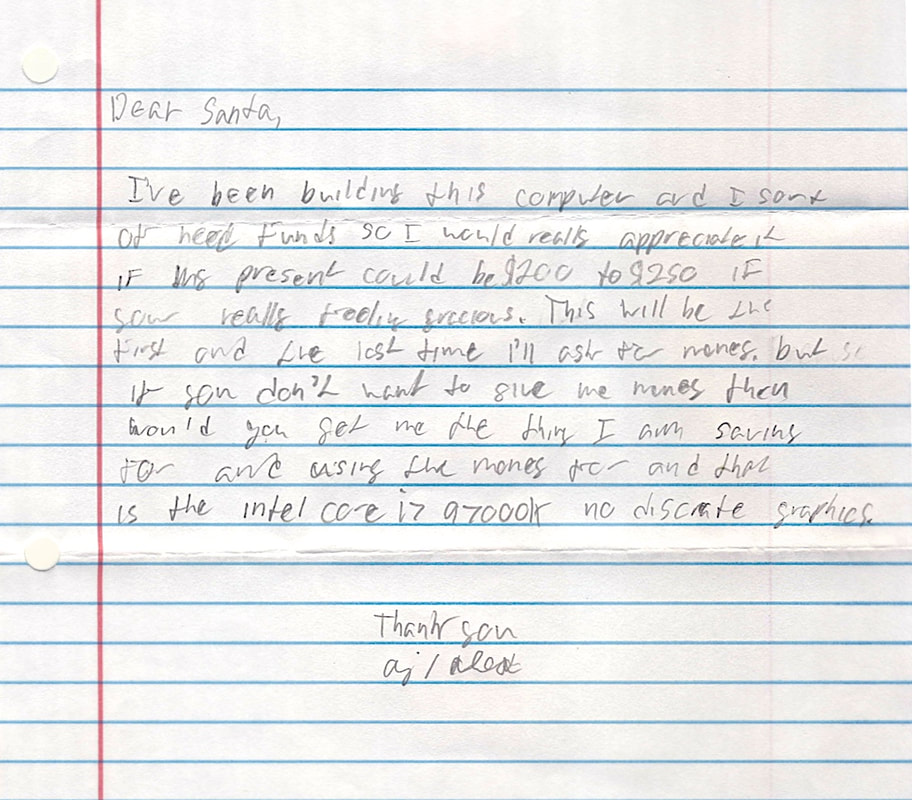 Dear Santa,
I've been building this computer and I sort
of need funds so I would really appreciate it
if my present could be $200 to $250 if
your really feeling gracious. This will be the
first and the last time I'll ask for money. but so
if you don't want to give me money then
would you get me the thing I am saving
for and using the money for and that
is the intel core i7 9700k no discrate graphics.
Thank you
aj / alext